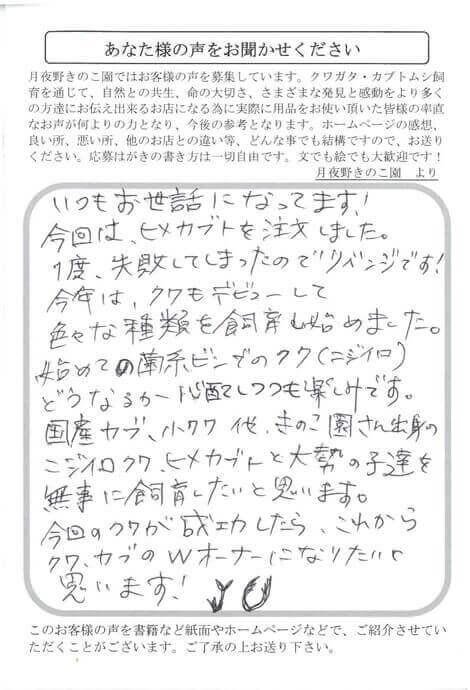 あなた様の声をお聞かせください
月夜野きのこ園ではお客様の声を募集しています。クワガタ・カブトムシ飼
育を通じて、自然との共生、命の大切さ、さまざまな発見と感動をより多く
の方達にお伝え出来るお店になる為に実際に用品をお使い頂いた皆様の率直
なお声が何よりの力となり、今後の参考となります。ホームページの感想、
良い所、悪い所、他のお店との違い等、どんな事でも結構ですので、お送り
ください。応募はがきの書き方は一切自由です。文でも絵でも大歓迎です！
月夜野きのこ園　より
いつもお世話になってます!
今回は、ヒメカブトを注文しました。
1度、失敗してしまったのでリベンジです!
今年は、クワもデビューして
色々な種類を飼育し始めました。
始めての菌糸ビンでのクワ(ニジイロ)
どうなるか心配しつつも楽しみです。
国産カブ、小クワ他、きのこ園さん出身の
ニジイロクワ、ヒメカブトと大勢の子達を
無事に飼育したいと思います。
今回のクワが成功したら、これから
クワ、カブのWオーナーになりたいと
思います!
このお客様の声を書籍など紙面やホームページなどで、ご紹介させてい
ただくことがございます。ご了承の上お送り下さい。